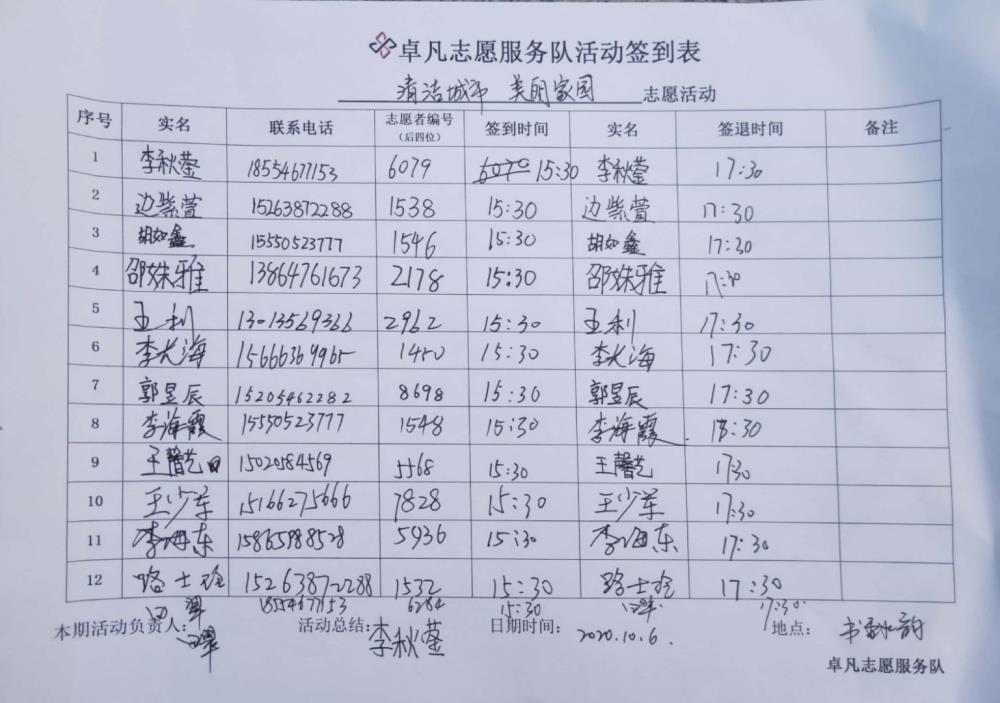 卓凡志愿服务队活动签到表
清洁城市 美丽家园 志愿活动
序号 实名 联系电话 志愿者编号（后四位） 签到时间 实名 签退时间 备注
1 李秋蓥 18554677153 6079 15:30 李秋蓥 17:30
2 边紫萱 15263872288 1538 15:30 边紫萱 17:30
3 胡如鑫 15550523777 1546 15:30 胡如鑫 17:30
4 邵姝雅 13864761673 2178 15:30 邵姝雅 17:30
5 王利 13013569366 2962 15:30 王利 17:30
6 李大海 15:30 李大海 17:30
7 郭昱辰 15205462282 8698 15:30 郭昱辰 17:30
8 李海霞 15550523777 1548 15:30 李海霞
9 王馨艺 15020584569 5568 15:30 王馨艺 17:30
10 王少军 15166275666 7828 15:30 王少军 17:30
11 李海东 15865988528 5936 15:30 李海东 17:30
12 路士玲 15263872288 1532 15:30 路士玲 17:30
18554677153 6284 15:30 17:30
本期活动负责人： 活动总结：李秋蓥 日期时间：2020.10.6. 地点：
卓凡志愿服务队